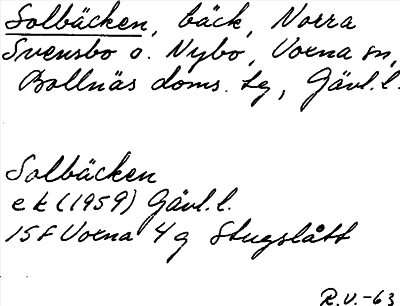 Solbäcken, bäck, Norra
Svensbo o. Nybo, Voxna sn,
Bollnäs doms. tg, Gävl. l.
Solbäcken
ek (1959) Gävl. l.
15F Voxna 4 g Stugslått
R.V.-63